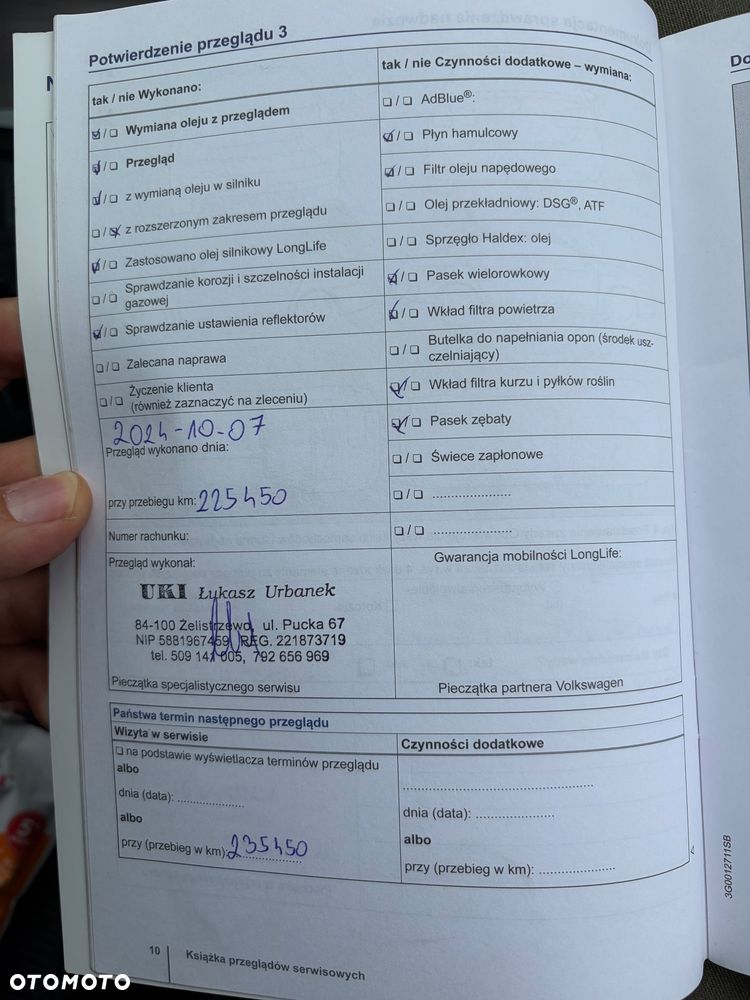 Potwierdzenie przeglądu 3
tak / nie Wykonano:
☑/❏ Wymiana oleju z przeglądem
☑/❏ Przegląd
☑/❏ z wymianą oleju w silniku
❏/☒ z rozszerzonym zakresem przeglądu
☑/❏ Zastosowano olej silnikowy LongLife
❏/❏ Sprawdzanie korozji i szczelności instalacji
gazowej
☑/❏ Sprawdzanie ustawienia reflektorów
❏/❏ Zalecana naprawa
❏/❏ Życzenie klienta
(również zaznaczyć na zleceniu)
2024-10-07
Przegląd wykonano dnia:
przy przebiegu km: 225450
Numer rachunku:
Przegląd wykonał:
UKI Łukasz Urbanek
84-100 Żelistrzewo, ul. Pucka 67
NIP 5881967459 REG. 221873719
tel. 509 141 005, 792 656 969
Pieczątka specjalistycznego serwisu
tak / nie Czynności dodatkowe – wymiana:
❏/❏ AdBlue®:
☑/❏ Płyn hamulcowy
☑/❏ Filtr oleju napędowego
❏/❏ Olej przekładniowy: DSG®, ATF
❏/❏ Sprzęgło Haldex: olej
☑/❏ Pasek wielorowkowy
☑/❏ Wkład filtra powietrza
❏/❏ Butelka do napełniania opon (środek usz-
czelniający)
☑/❏ Wkład filtra kurzu i pyłków roślin
☑/❏ Pasek zębaty
❏/❏ Świece zapłonowe
❏/❏ ......................
❏/❏ ......................
Gwarancja mobilności LongLife:
Pieczątka partnera Volkswagen
Państwa termin następnego przeglądu
Wizyta w serwisie
❏ na podstawie wyświetlacza terminów przeglądu
albo
dnia (data): ...................
albo
przy (przebieg w km): 235450
Czynności dodatkowe
......................................................
dnia (data): ......................
albo
przy (przebieg w km): .....................
10 Książka przeglądów serwisowych
3G0012711SB
Do
OTOMOTO